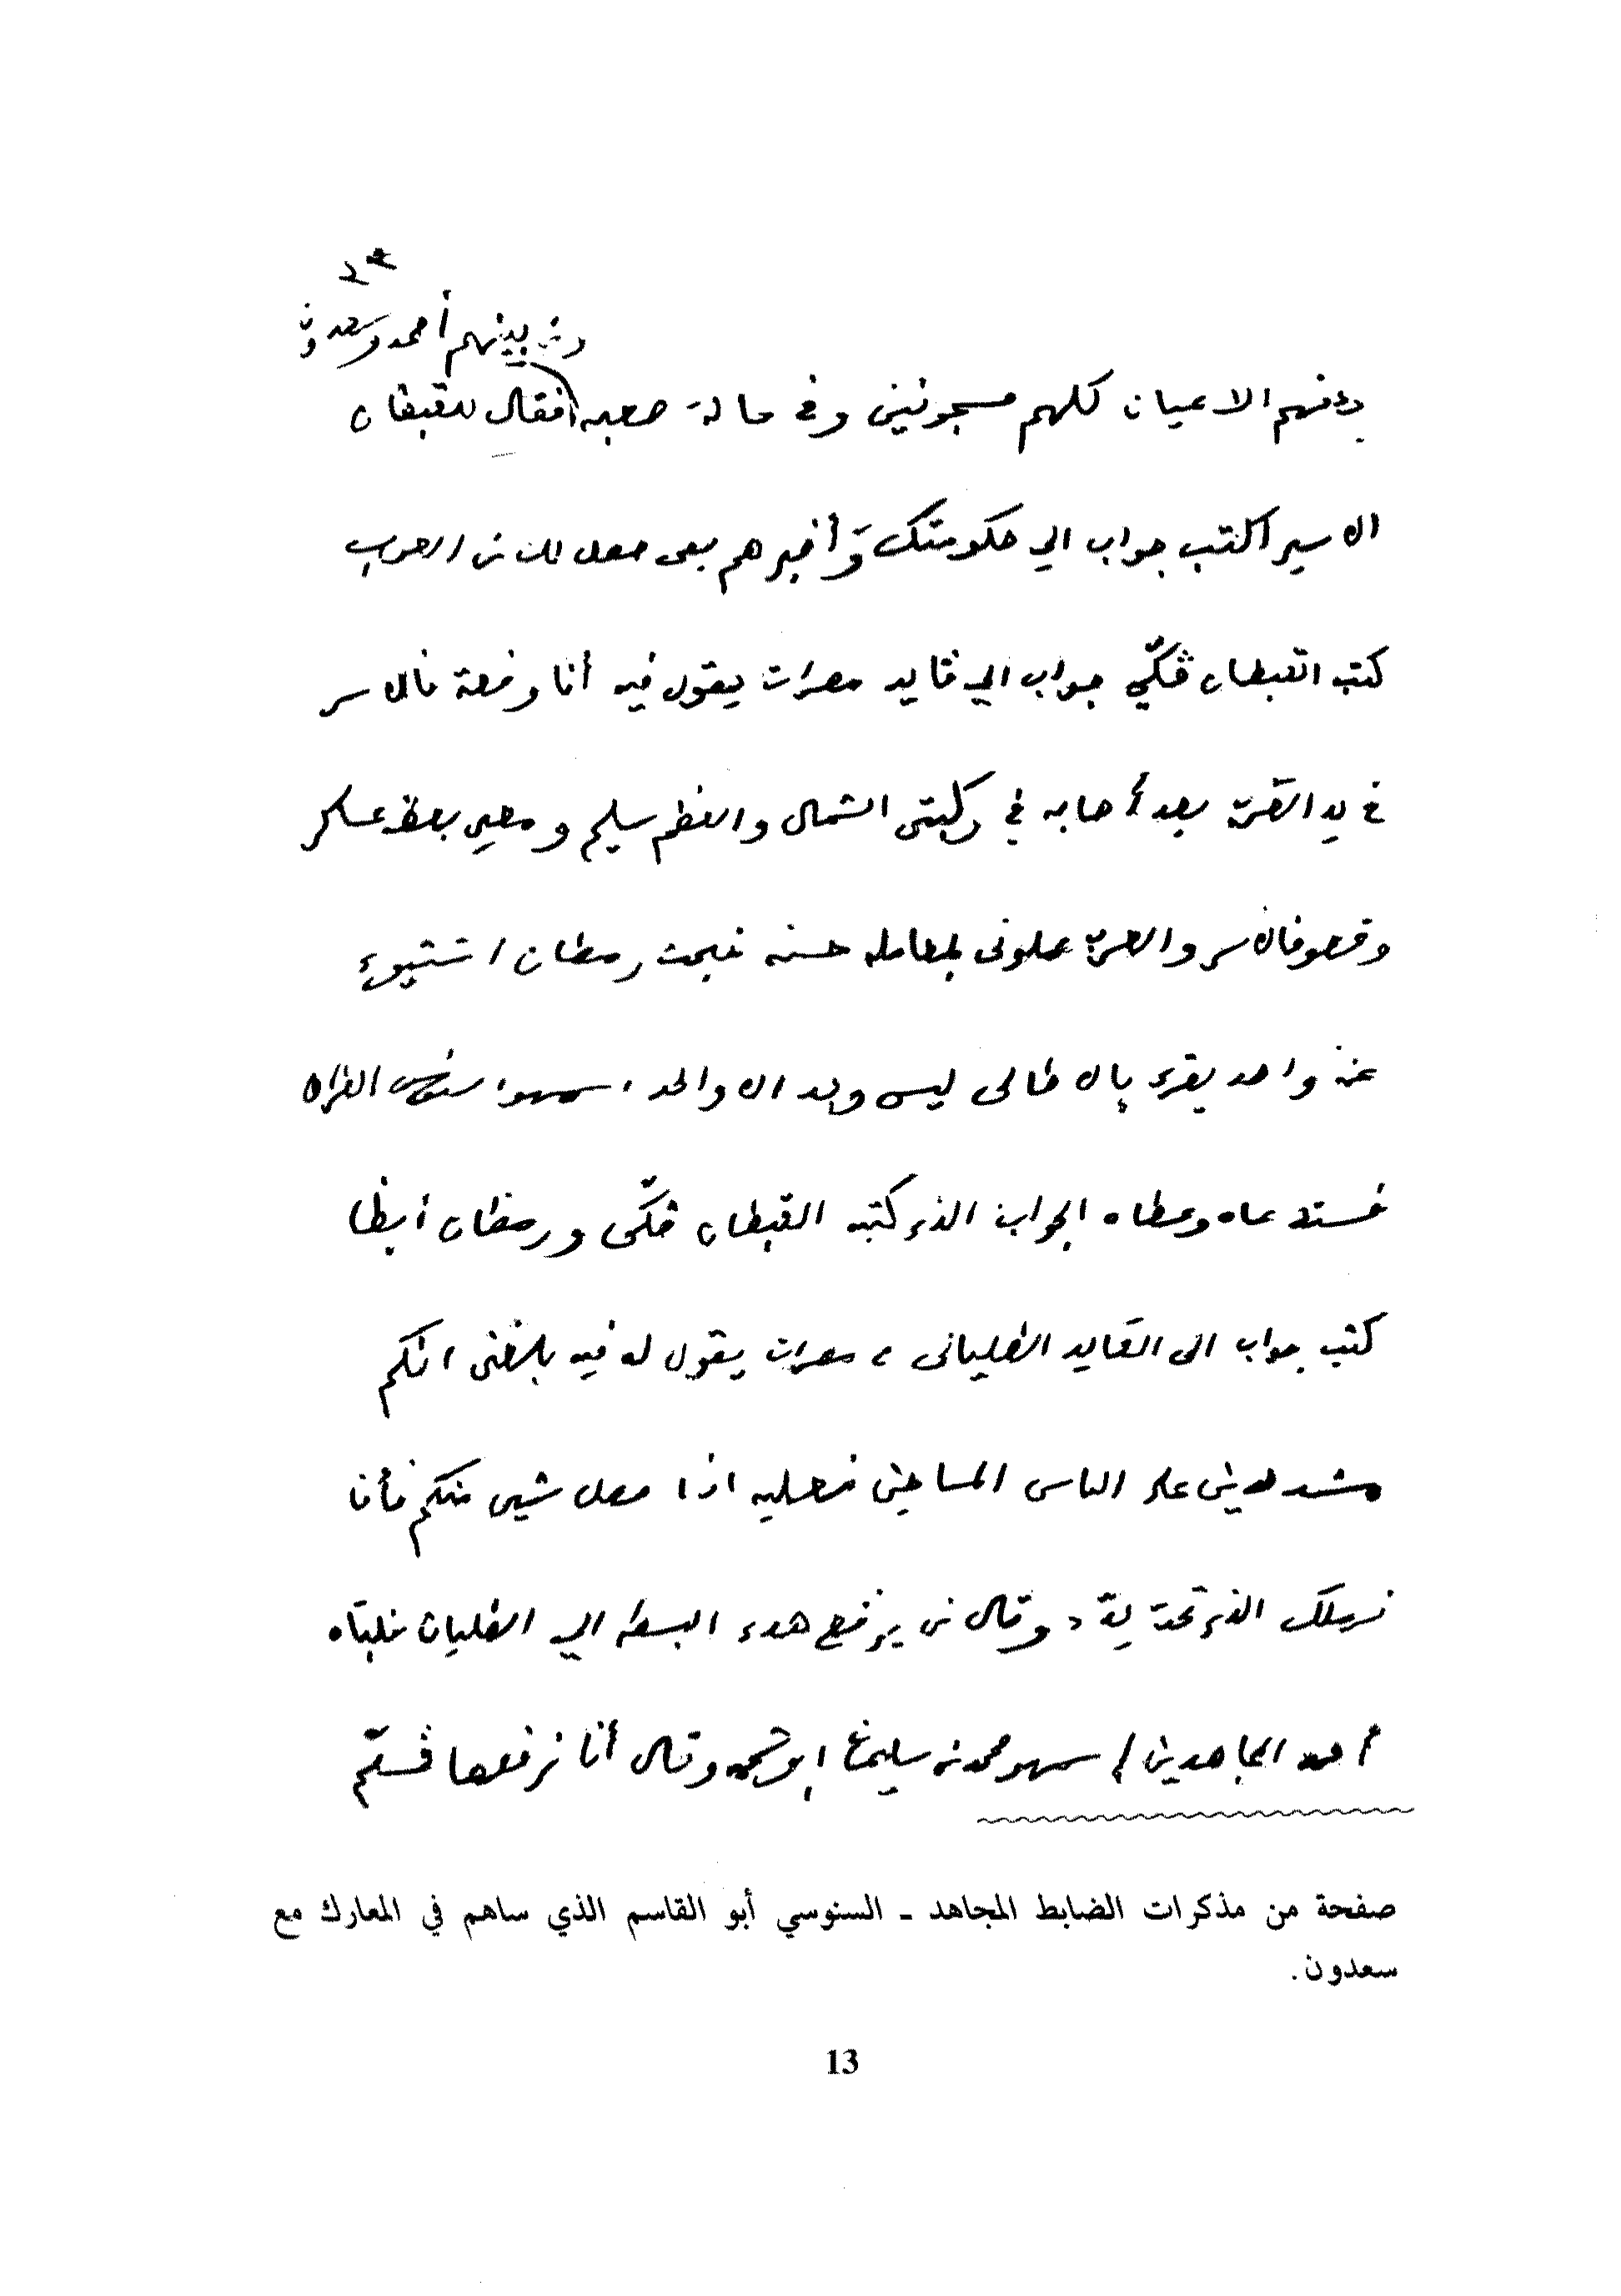 ومن بينهم أحمد وسعدون
ودفنهم الاعيان كلهم مسجونين وفي حالة صعبه فقال للقبطان
الاسير اكتب جواب الي حكومتك وأخبرهم بمى حصل لك من العرب
كتب القبطان ڤكّي جواب الي قايد مصرات يقول فيه أنا وقعة فالاسر
في يد العرب بعد أصابه في ركبتي الشمال والعظم سليم ومعي بعظ عسكر
وقعو فالاسر والعرب عملوني بمعامله حسنه فبحث رمظان اشتيوي
عن واحد يقرء بالاطالى ليس وجد الا واحد اسمهوا سنوسى القزاه
فستدعاه وعطاه الجواب الذى كتبه القبطان ڤكّى ورمظان أيظا
كتب جواب الى القايد الطليانى مصرات يقول له فيه بلغني انكم
مشددين على الناس المساجين فعليه اذا حصل شيى منكم فأنا
نرسلك الذى تحت يدّ وقال من يرفع هدء البسطه الي الطليان فلبتاه
أحد المجاهدين اسمهو محمد بن سليمان ابوشحمه وقال أنا نرفعها فستلم
صفحة من مذكرات الضابط المجاهد ـ السنوسي أبو القاسم الذي ساهم في المعارك مع
سعدون.
13